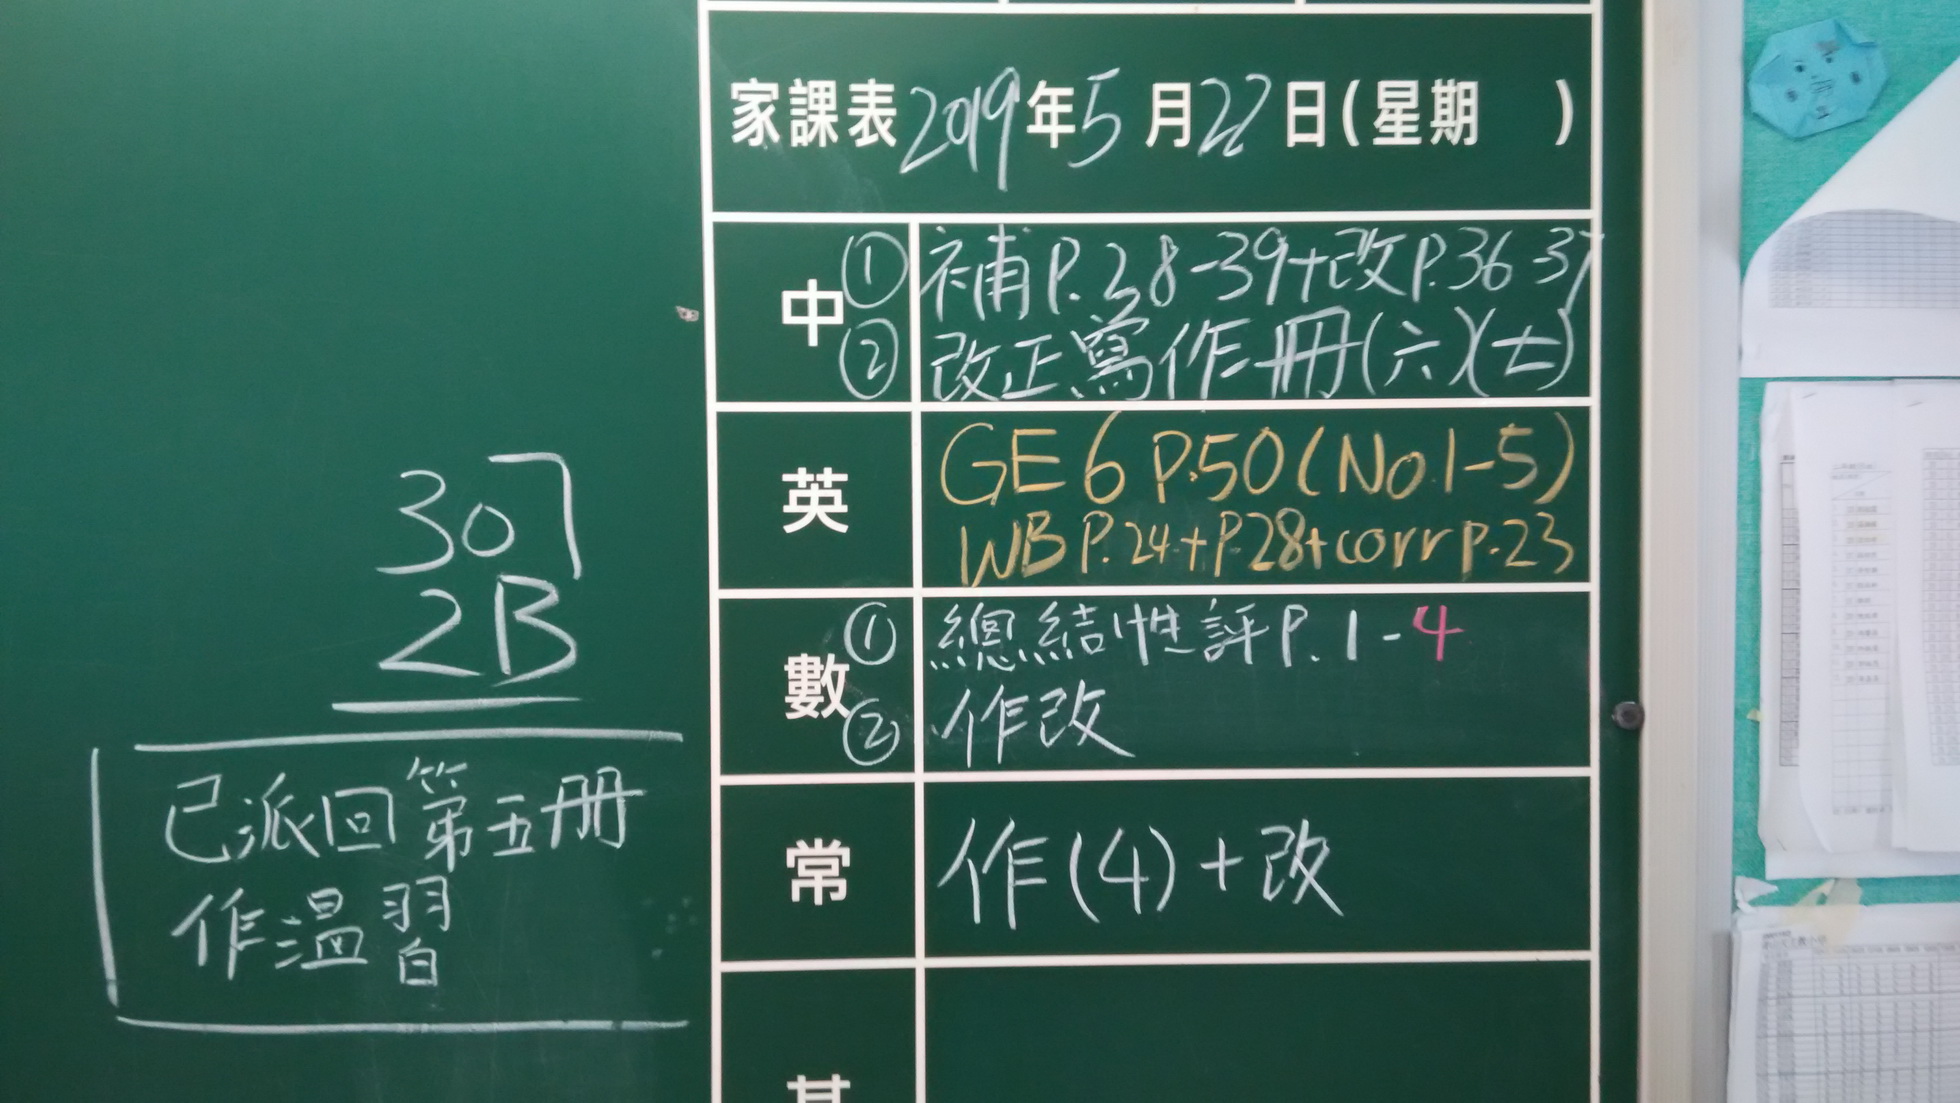 家課表2019年5月22日(星期 )
中
①補P.28-39+改P.36-37
②改正寫作冊(六)(七)
英
GE 6 P.50(No.1-5)
WB P.24+P.28+corr P.23
數
①總結性評P.1-4
②作改
常
作(4)+改
307
2B
已派回第五冊
作溫習